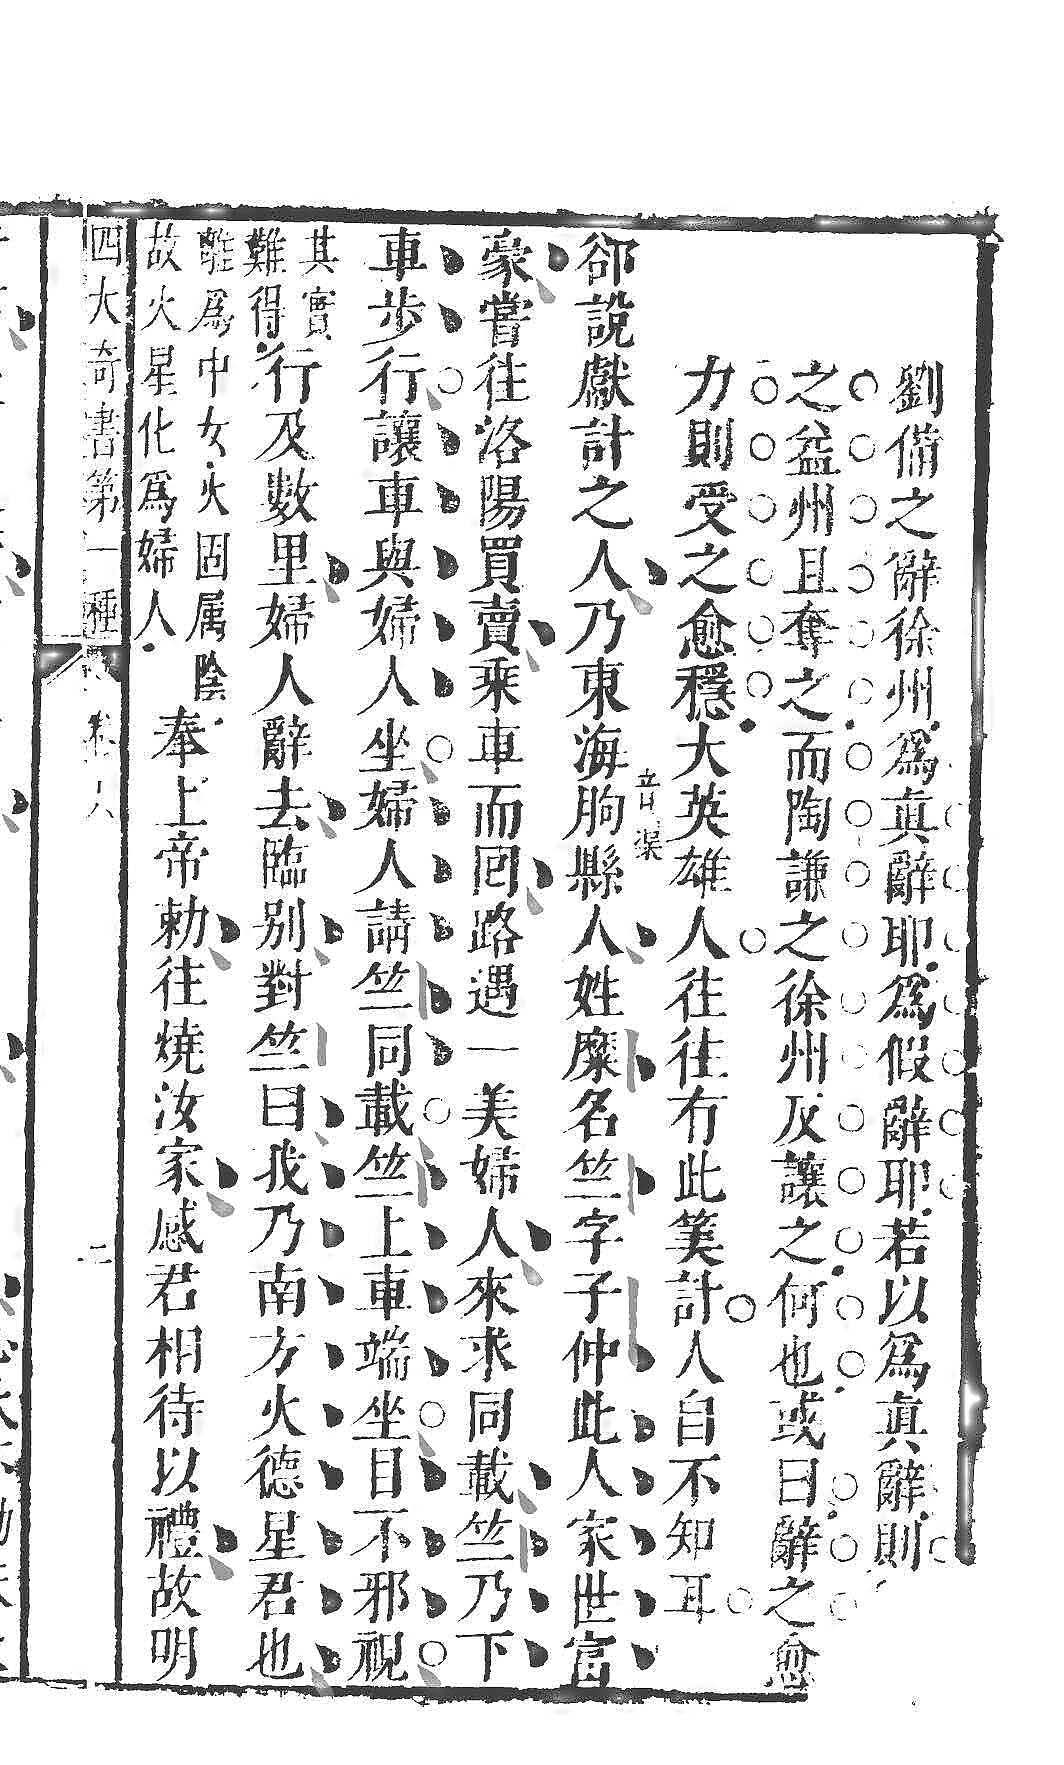 劉備之辭徐州爲真辭耶爲假辭耶若以爲真辭則
之益州且奪之而陶謙之徐州反讓之何也或曰辭之愈
力則受之愈穩大英雄人往往有此筭計人自不知耳
卻說獻計之人乃東海朐音渠縣人姓糜名竺字子仲此人家世富
豪嘗往洛陽買賣乘車而回路遇一美婦人來求同載竺乃下
車步行讓車與婦人坐婦人請竺同載竺上車端坐目不邪視
其實
難得行及數里婦人辭去臨別對竺曰我乃南方火德星君也
離爲中女火固属陰
故火星化爲婦人奉上帝勅往燒汝家感君相待以禮故明
四大奇書第一種 卷六 二